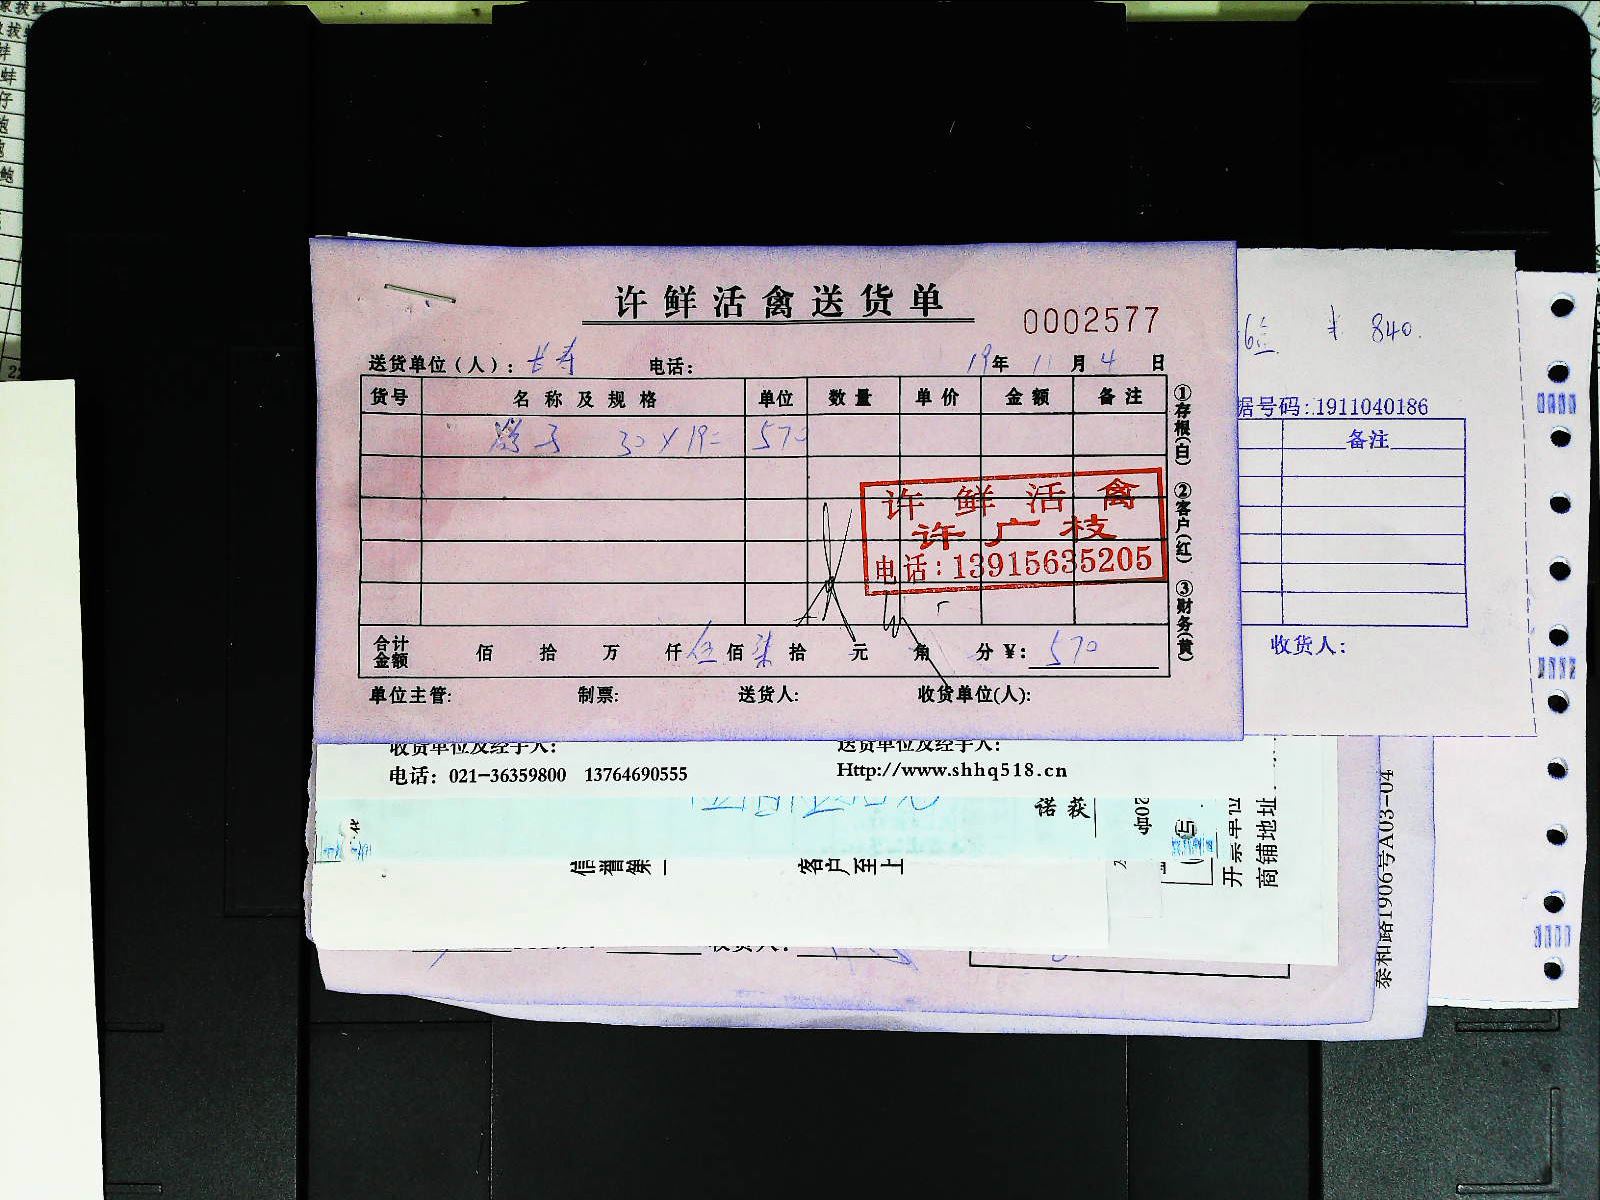 许鲜活禽送货单
0002577
送货单位（人）：长寿 电话： 19年 11月 4日
货号 名称及规格 单位 数量 单价 金额 备注
鸽子 30×19= 570
许鲜活禽
许广枝
电话：13915635205
合计金额 佰 拾 万 仟 伍佰 柒拾 元 角 分 ¥：570
单位主管: 制票: 送货人: 收货单位(人):
①存根(白) ②客户(红) ③财务(黄)
¥ 840.
据号码:1911040186
备注
收货人:
收货单位及经手人: 送货单位及经手人:
电话：021-36359800 13764690555 Http://www.shhq518.cn
诺获
信誉第一 客户至上
开票单位
商铺地址
泰和路1906号A03-04
收货人: